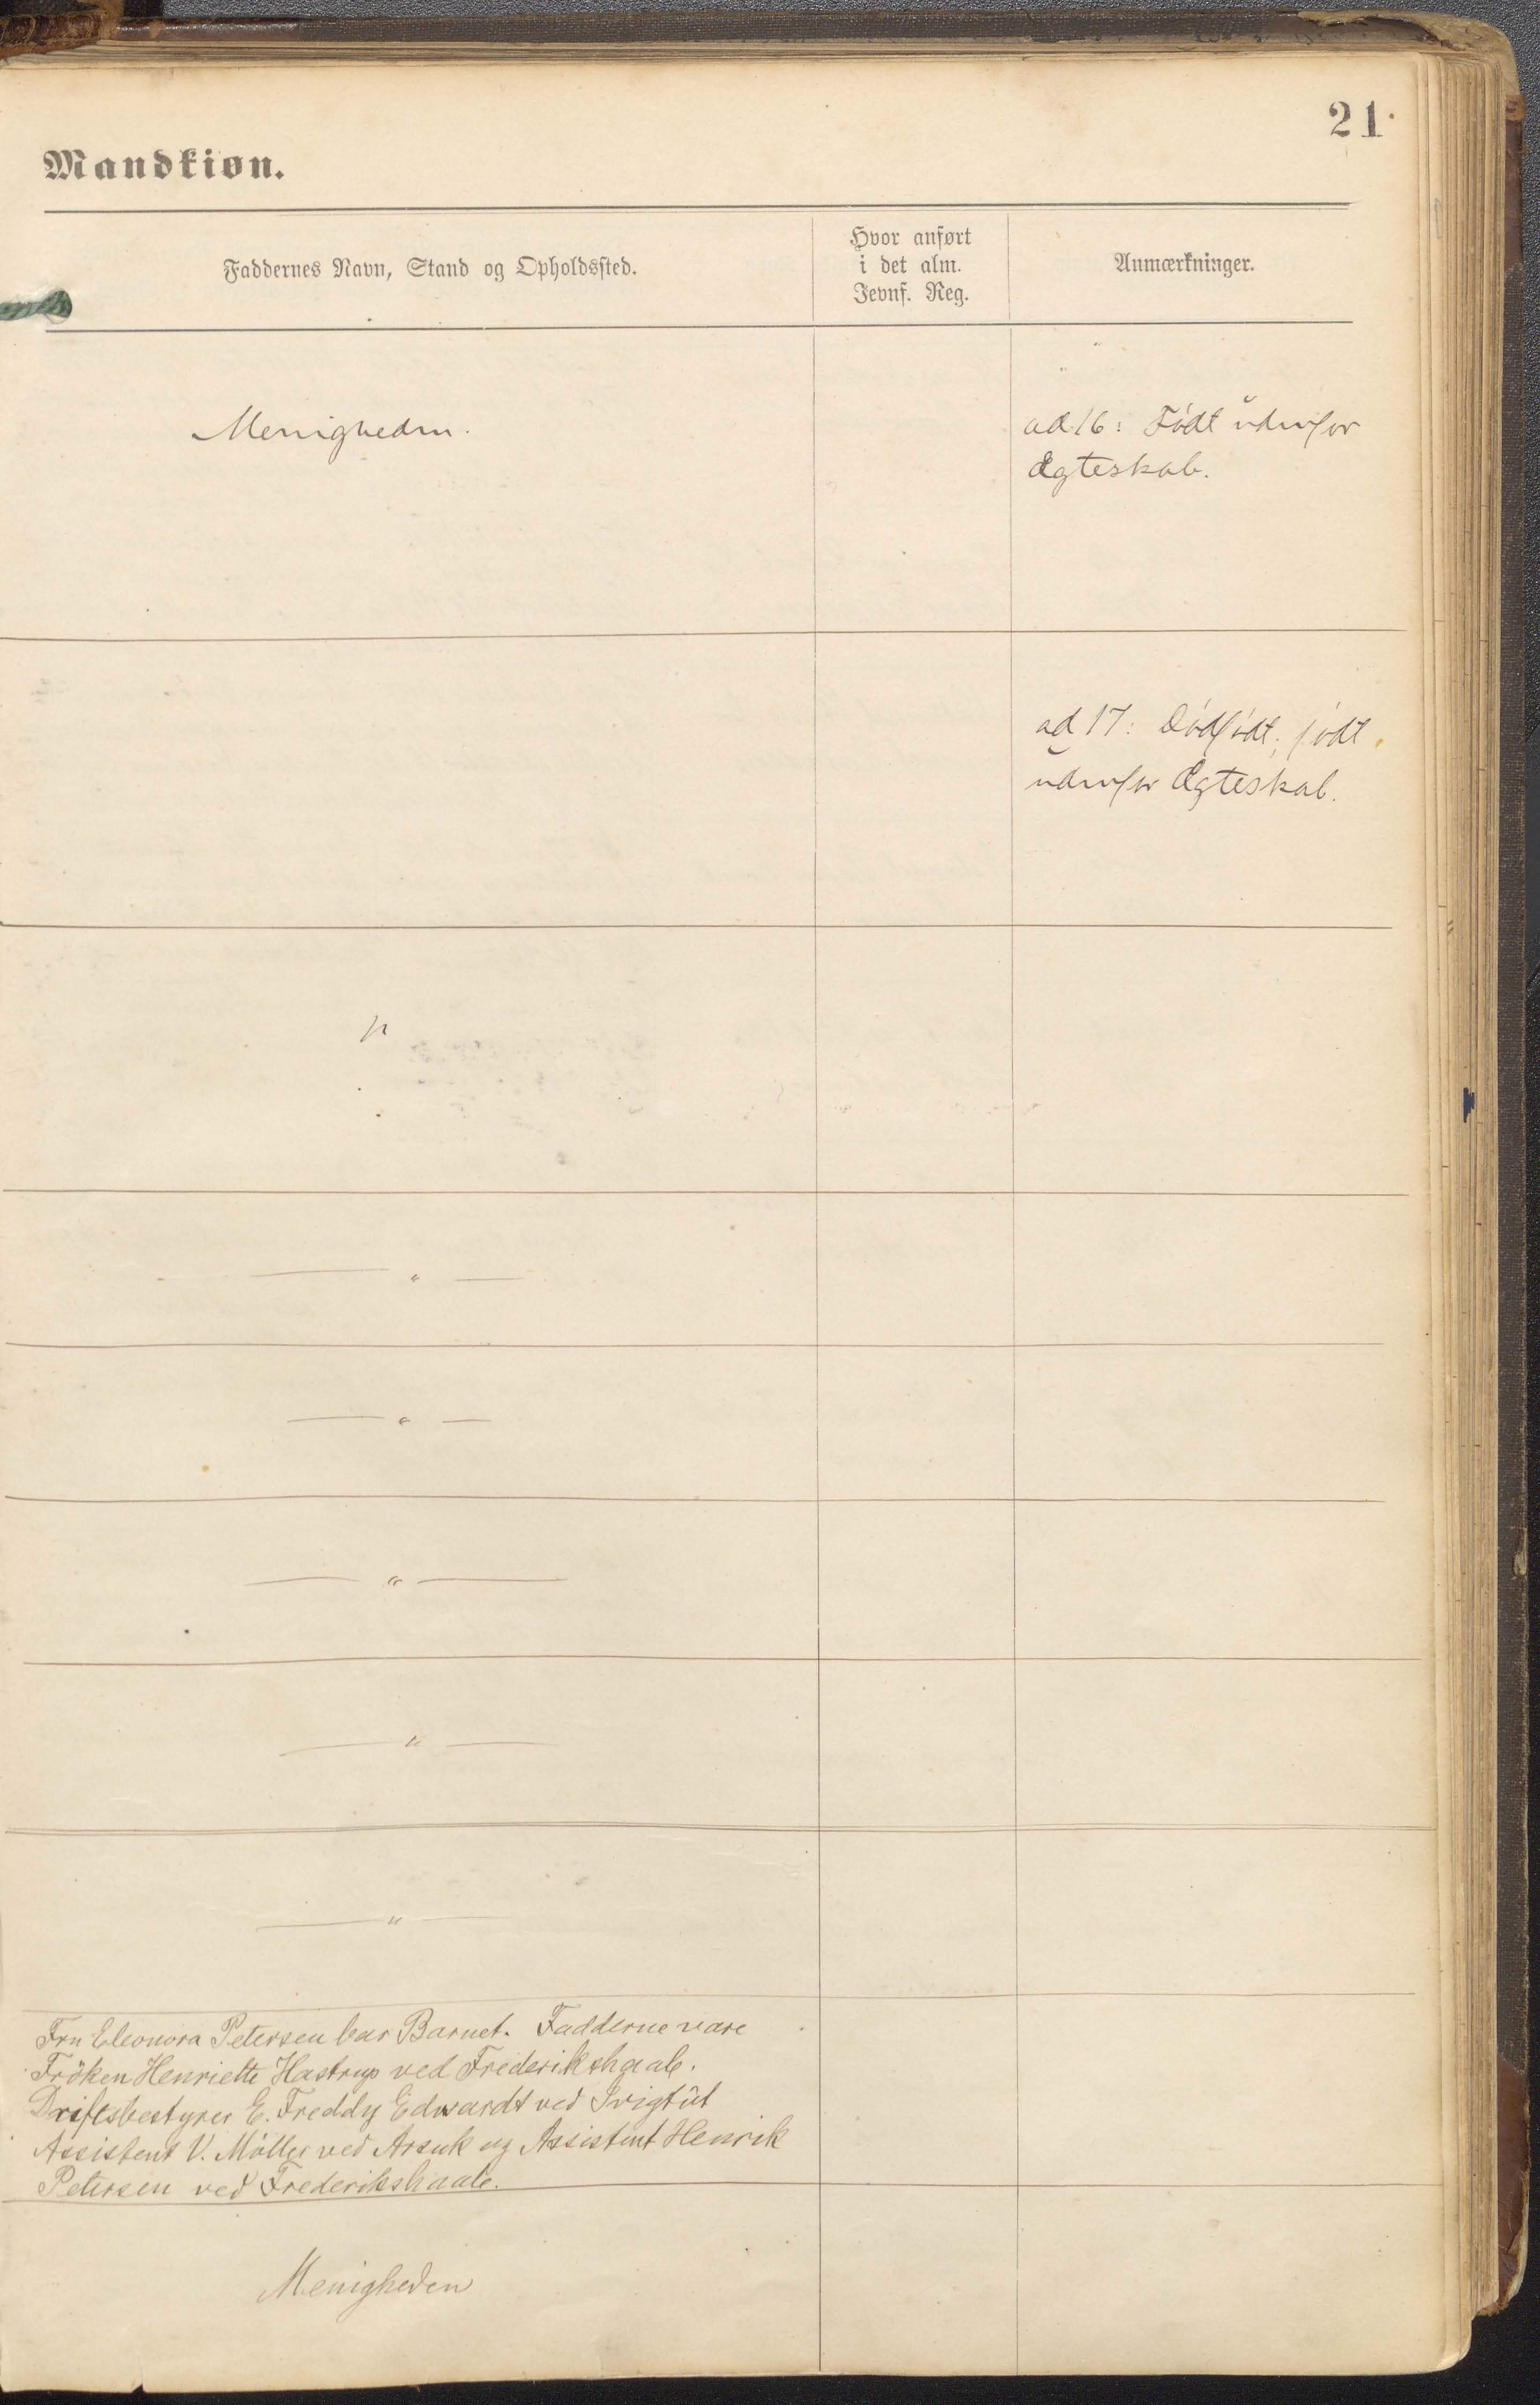 21.
Mandkiøn.
Faddernes Navn, Stand og Opholdssted.
Hvor anført
i det alm.
Jevnf. Reg.
Anmærkninger.
Menigheden.
ad 16: Født udenfor
Ægteskab.
ad 17: Dødfødt; født
udenfor Ægteskab.
"
— " —
— " —
— " —
— " —
— " —
Fru Eleonora Petersen bar Barnet. Fadderne vare
Fröken Henriette Hastrup ved Frederikshaab.
Driftsbestyrer E. Freddy Edwardt ved Ivigtût
Assistent V. Möller ved Arsuk og Assistent Henrik
Petersen ved Frederikshaab.
Menigheden